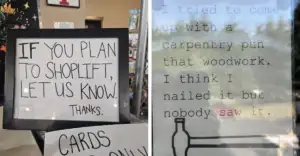 IF YOU PLAN
TO SHOPLIFT,
LET US KNOW.
THANKS.
CARDS
ONLY
I tried to com
up with a
carpentry pun
that woodwork.
I think I
nailed it but
nobody saw it.